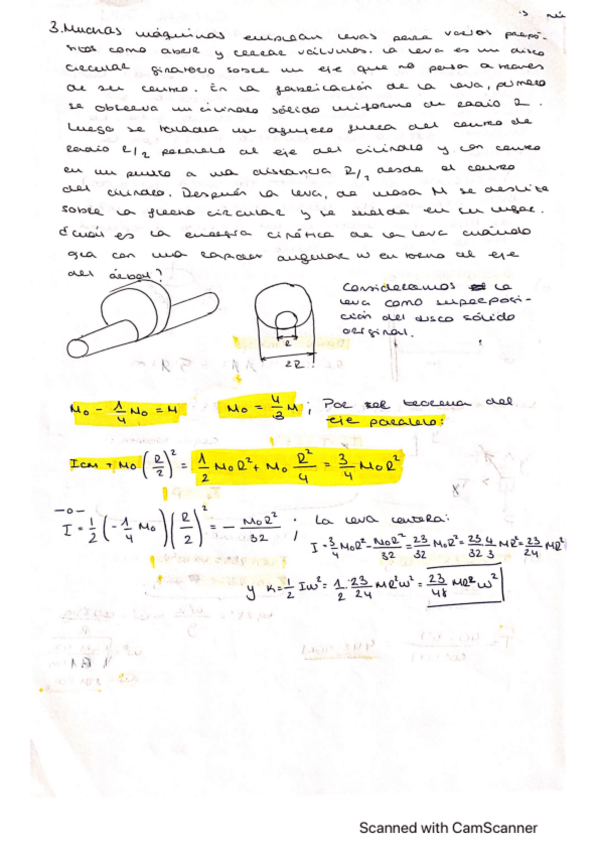 3. Muchas máquinas emplean levas para varios propó-
sitos como abrir y cerrar válvulas. La leva es un disco
circular giratorio sobre un eje que no pasa a través
de su centro. En la fabricación de la leva, primero
se observa un cilindro sólido uniforme de radio R.
Luego se taladra un agujero fuera del centro de
radio R/2 paralelo al eje del cilindro y con centro
en un punto a una distancia R/2 desde el centro
del cilindro. Después la leva, de masa M se deslíza
sobre la flecha circular y se suelda en su lugar.
¿Cuál es la energía cinética de la leva cuándo
gira con una rapidez angular w en torno al eje
del árbol?
Consideramos la
leva como superposi-
ción del disco sólido
original.
R
2R
M₀ - 1/4 M₀ = M
M₀ = 4/3 M ; Por teorema del
eje paralelo:
Icm + M₀ (R/2)² = 1/2 M₀R² + M₀ R²/4 = 3/4 M₀R²
-o-
I = 1/2 (-1/4 M₀)(R/2)² = - M₀R²/32 ; La leva entera:
I = 3/4 M₀R² - M₀R²/32 = 23/32 M₀R² = 23/32 4/3 MR² = 23/24 MR²
y K = 1/2 Iw² = 1/2 · 23/24 MR²w² = 23/48 MR²w²
Scanned with CamScanner